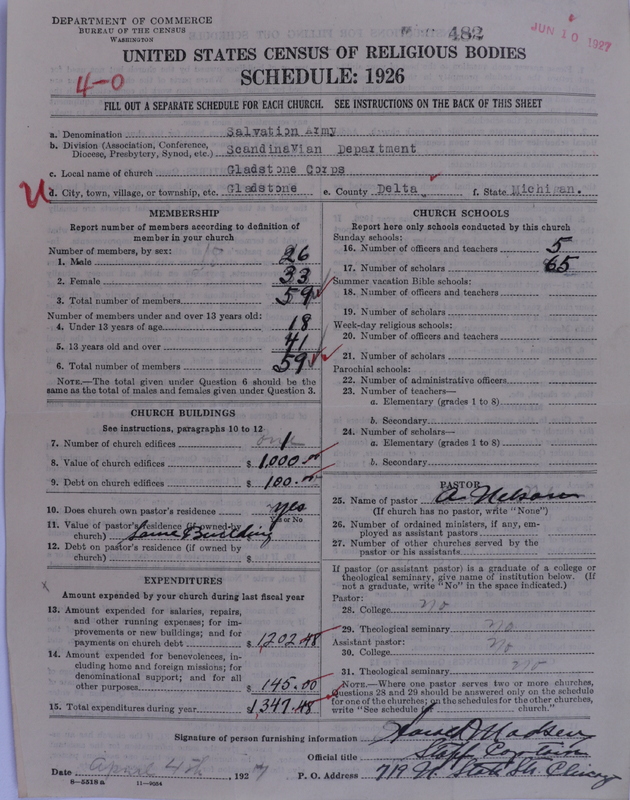 DEPARTMENT OF COMMERCE
BUREAU OF THE CENSUS
WASHINGTON
482
JUN 10 1927
UNITED STATES CENSUS OF RELIGIOUS BODIES
SCHEDULE: 1926
4-0
FILL OUT A SEPARATE SCHEDULE FOR EACH CHURCH. SEE INSTRUCTIONS ON THE BACK OF THIS SHEET
a. Denomination Salvation Army
b. Division (Association, Conference, Diocese, Presbytery, Synod, etc.) Scandinavian Department
c. Local name of church Gladstone Corps
d. City, town, village, or township, etc. Gladstone e. County Delta f. State Michigan.
MEMBERSHIP
Report number of members according to definition of
member in your church
Number of members, by sex:
1. Male 26
2. Female 33
3. Total number of members 59
Number of members under and over 13 years old:
4. Under 13 years of age 18
5. 13 years old and over 41
6. Total number of members 59
NOTE.—The total given under Question 6 should be
same as the total of males and females given under Question 3.
CHURCH BUILDINGS
See instructions, paragraphs 10 to 12
7. Number of church edifices one 1
8. Value of church edifices $ 1,000.00
9. Debt on church edifices $ 100.00
10. Does church own pastor's residence yes
Yes or No
11. Value of pastor's residence (if owned by
church) Same Building
12. Debt on pastor's residence (if owned by
church) $
EXPENDITURES
Amount expended by your church during last fiscal year
13. Amount expended for salaries, repairs,
and other running expenses; for im-
provements or new buildings; and for
payments on church debt $ 1,202.48
14. Amount expended for benevolences, in-
cluding home and foreign missions; for
denominational support; and for all
other purposes $ 145.00
15. Total expenditures during year $ 1,347.48
CHURCH SCHOOLS
Report here only schools conducted by this church
Sunday schools:
16. Number of officers and teachers 5
17. Number of scholars 65
Summer vacation Bible schools:
18. Number of officers and teachers
19. Number of scholars
Week-day religious schools:
20. Number of officers and teachers
21. Number of scholars
Parochial schools:
22. Number of administrative officers
23. Number of teachers—
a. Elementary (grades 1 to 8)
b. Secondary
24. Number of scholars—
a. Elementary (grades 1 to 8)
b. Secondary
PASTOR
25. Name of pastor A. Nelson
(If church has no pastor, write "None")
26. Number of ordained ministers, if any, em-
ployed as assistant pastors
27. Number of other churches served by the
pastor or his assistants
If pastor (or assistant pastor) is a graduate of a college or
theological seminary, give name of institution below. (If
not a graduate, write "No" in the space indicated.)
Pastor:
28. College No
29. Theological seminary No
Assistant pastor:
30. College No
31. Theological seminary No
NOTE.—Where one pastor serves two or more churches,
Questions 28 and 29 should be answered only on the schedule
for one of the churches; on the schedules for the other churches,
write "See schedule of church."
Signature of person furnishing information Madsen
Official title Staff Captain
Date April 4th 1927 P. O. Address 719 N. State St. Chicago
8-5518a 11-9034